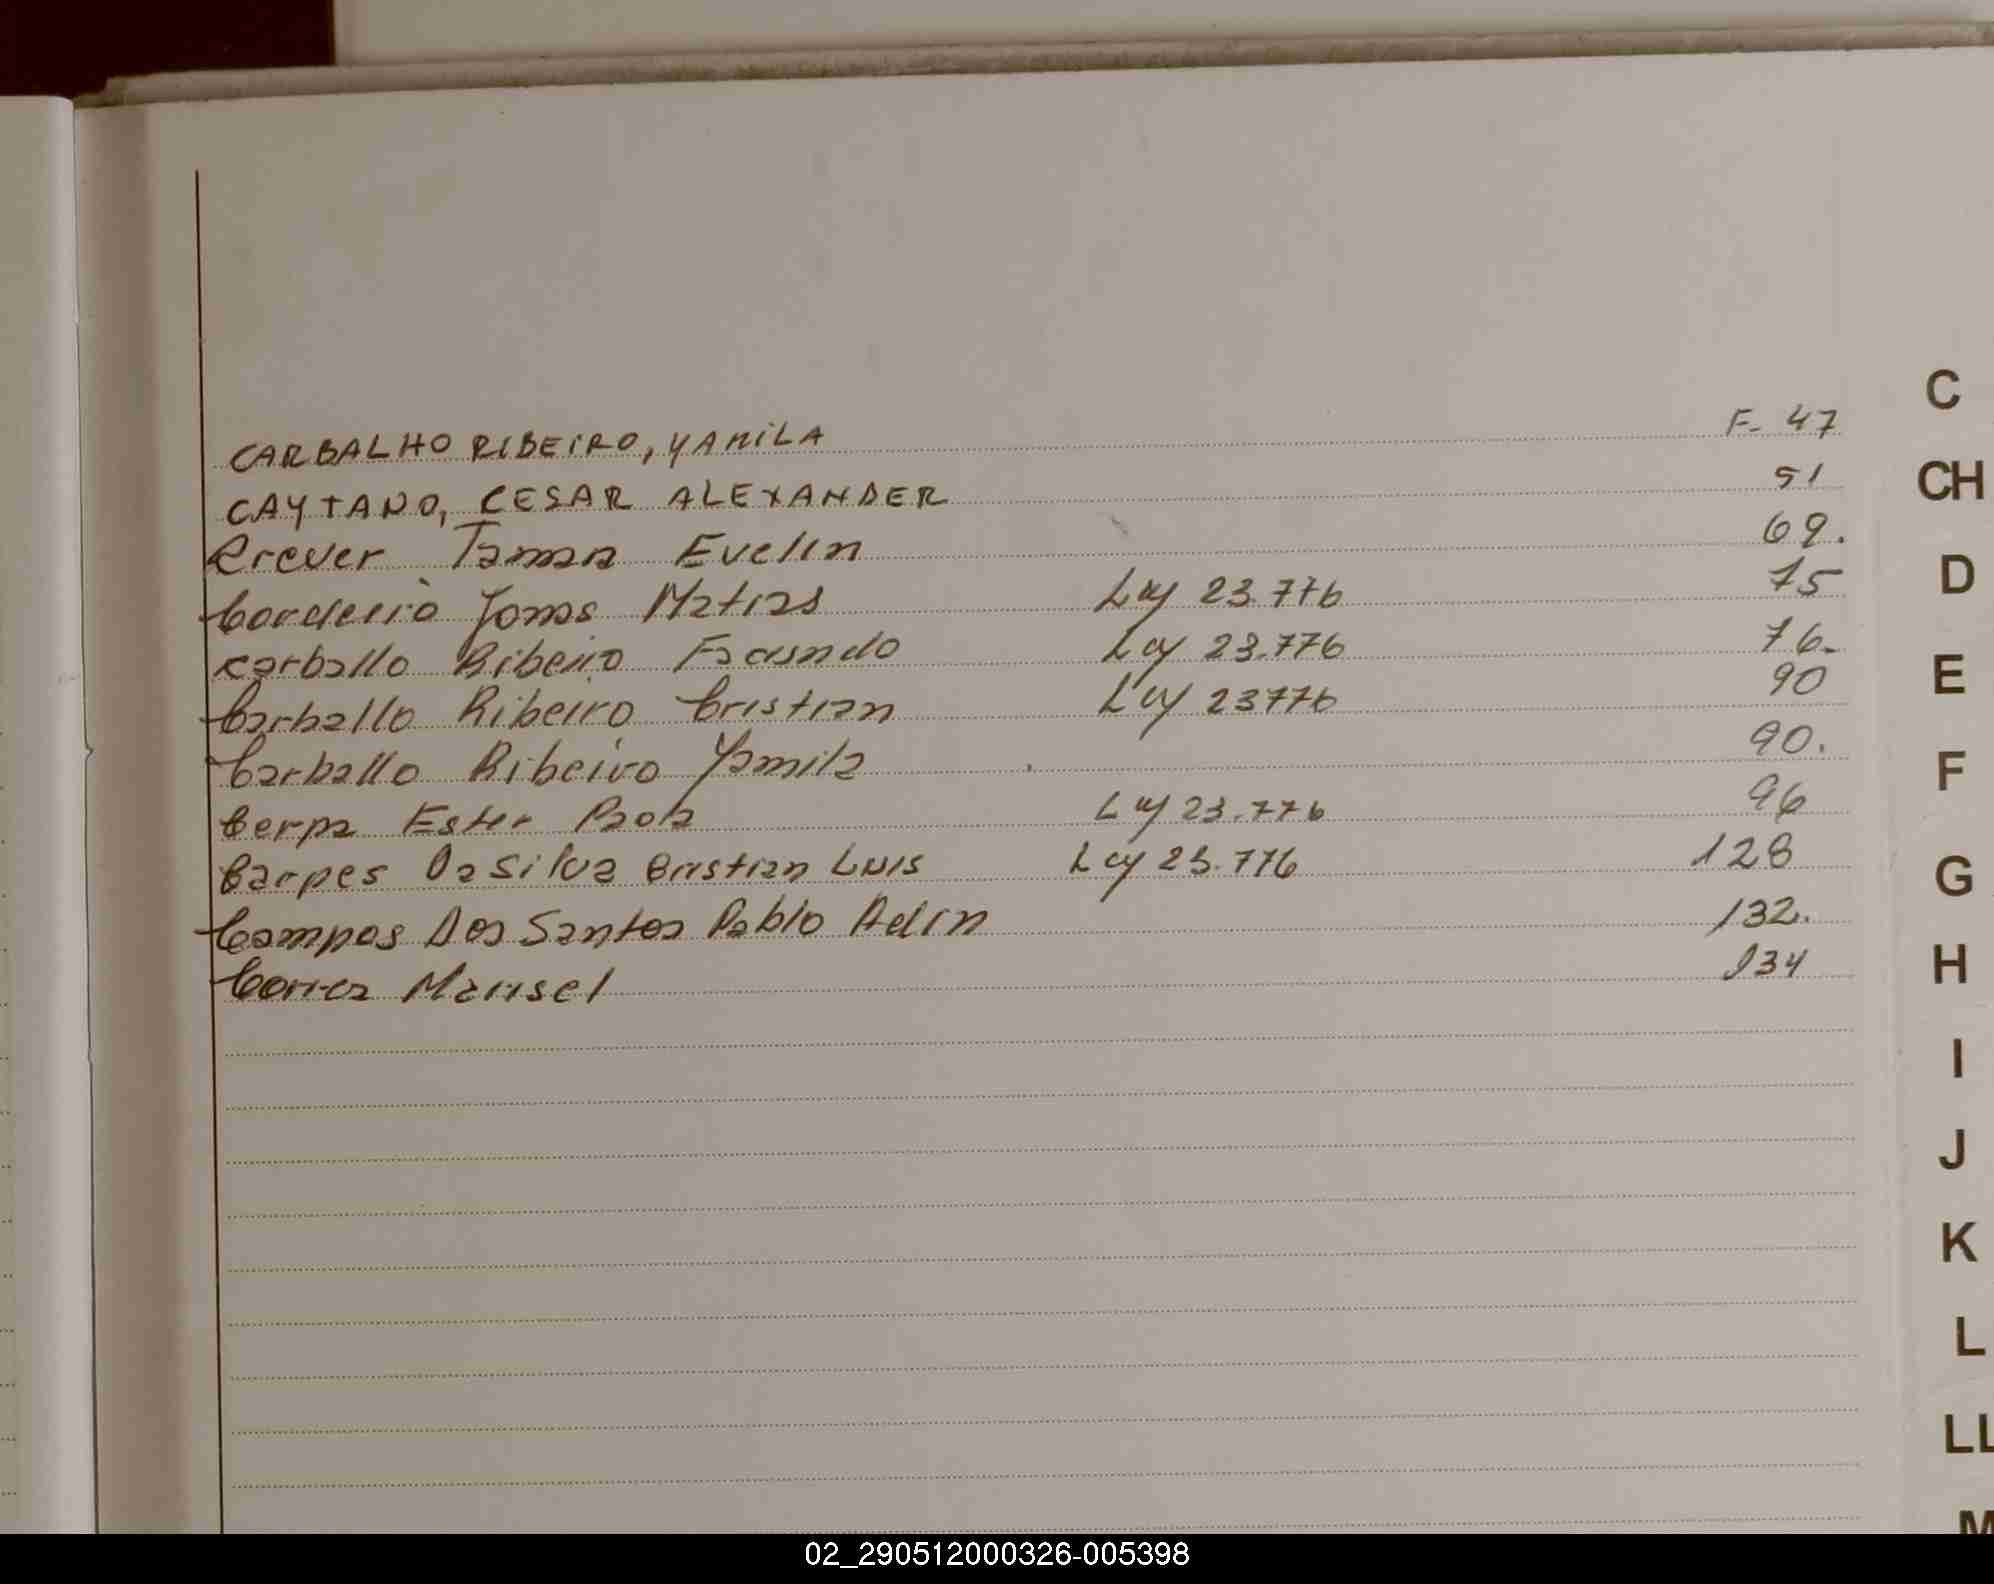 CARBALHO RIBEIRO, YAMILA F. 47
CAYTANO, CESAR ALEXANDER 51
Crever Tamara Evelin 69.
Cordeiro Jonas Matias Ley 23.776 75
Carballo Ribeiro Facundo Ley 23.776 76.
Carballo Ribeiro Cristian Ley 23776 90
Carballo Ribeiro Yamila 90.
Cerpa Ester Paola Ley 23.776 96
Carpes Da Silva Cristian Luis Ley 23.776 128
Campos Dos Santos Pablo 132.
Correa Marisel 134
C
CH
D
E
F
G
H
I
J
K
L
LL
M
02_290512000326-005398